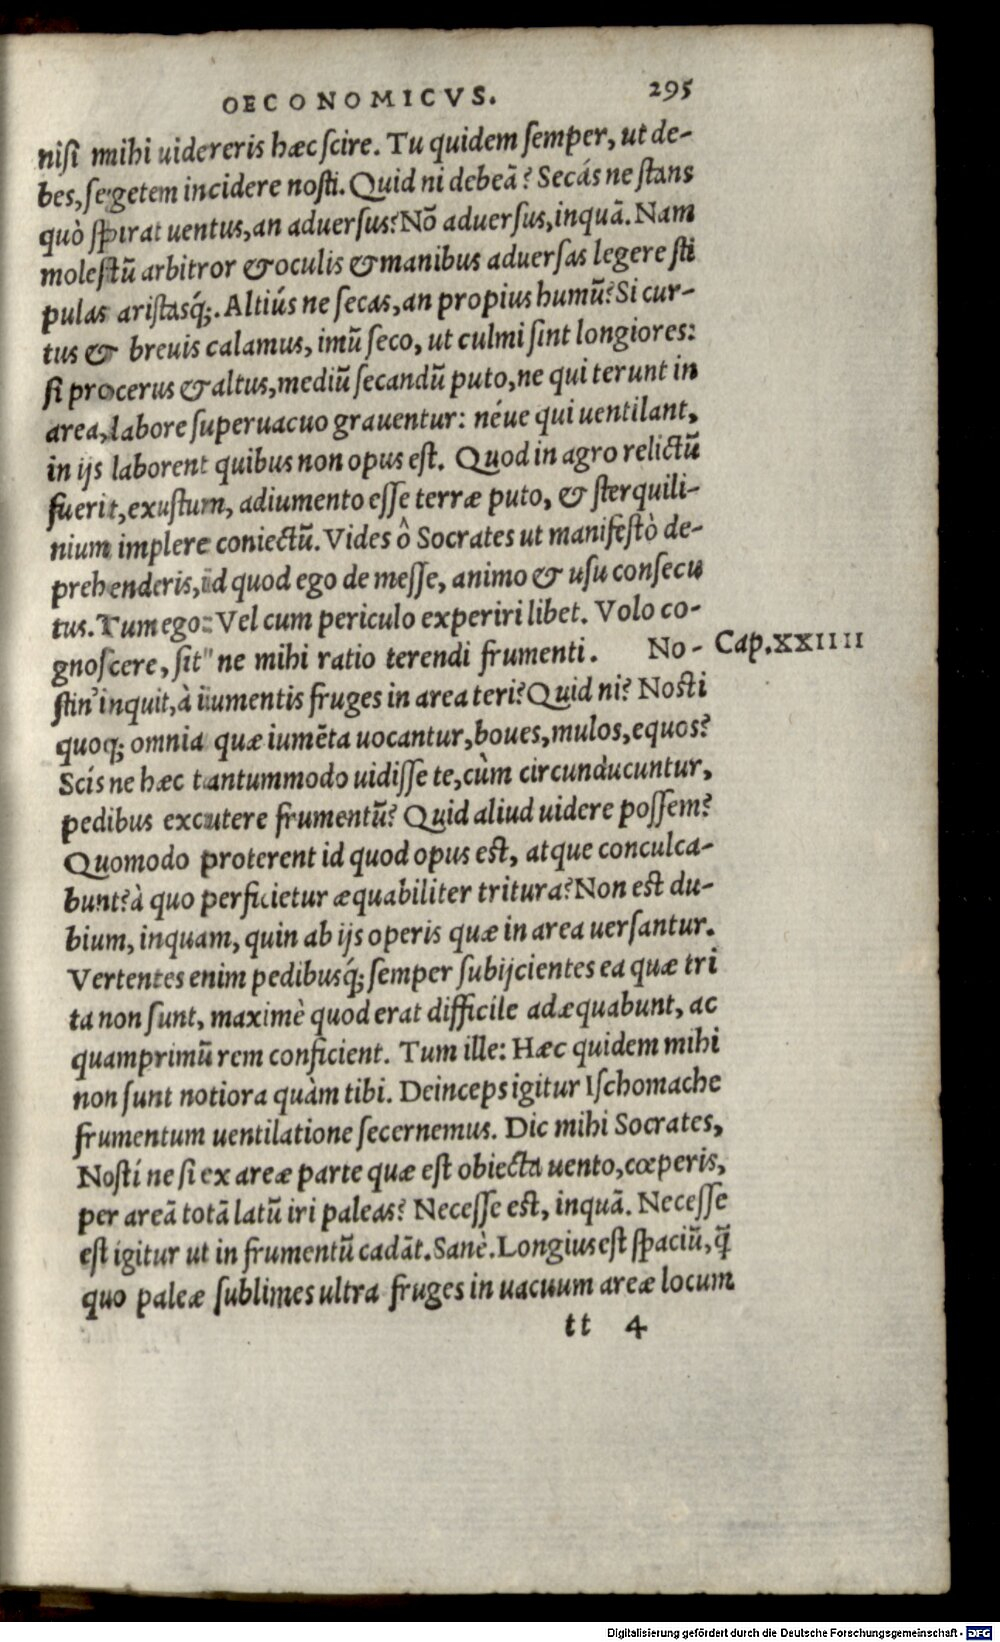 OECONOMICVS. 295
nisi mihi uidereris hæc scire. Tu quidem semper, ut de-
bes, segetem incidere nosti. Quid ni debeā? Secás ne stans
quò spirat uentus, an aduersus? Nō aduersus, inquā. Nam
molestū arbitror & oculis & manibus aduersas legere sti
pulas aristasq́;. Altiús ne secas, an propius humū? Si cur-
tus & breuis calamus, imū seco, ut culmi sint longiores:
si procerus & altus, mediū secandū puto, ne qui terunt in
area, labore superuacuo grauentur: néue qui uentilant,
in ijs laborent quibus non opus est. Quod in agro relictū
fuerit, exustum, adiumento esse terræ puto, & sterquili-
nium implere coniectū. Vides ô Socrates ut manifestò de-
prehenderis, id quod ego de messe, animo & usu consecu
tus. Tum ego: Vel cum periculo experiri libet. Volo co-
gnoscere, sit ne mihi ratio terendi frumenti. No- Cap. XXIIII
stin' inquit, à iumentis fruges in area teri? Quid ni? Nosti
quoq; omnia quæ iumēta uocantur, boues, mulos, equos?
Scís ne hæc tantummodo uidisse te, cùm circunducuntur,
pedibus excutere frumentū? Quid aliud uidere possem?
Quomodo proterent id quod opus est, atque conculca-
bunt? à quo perficietur æquabiliter tritura? Non est du-
bium, inquam, quin ab ijs operis quæ in area uersantur.
Vertentes enim pedibusq́; semper subijcientes ea quæ tri
ta non sunt, maximè quod erat difficile adæquabunt, ac
quamprimū rem conficient. Tum ille: Hæc quidem mihi
non sunt notiora quàm tibi. Deinceps igitur Ischomache
frumentum uentilatione secernemus. Dic mihi Socrates,
Ností ne si ex areæ parte quæ est obiecta uento, cœperis,
per areā totā latū iri paleas? Necesse est, inquā. Necesse
est igitur ut in frumentū cadāt. Sanè. Longius est spaciū, q̄
quo paleæ sublimes ultra fruges in uacuum areæ locum
tt 4
Digitalisierung gefördert durch die Deutsche Forschungsgemeinschaft - DFG